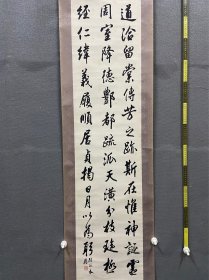 道洽留棠傳芳之跡斯在惟神誕靈
周室降德酆都疏派天潢分枝建極
經仁緯義履順居貞揭日月以為躬